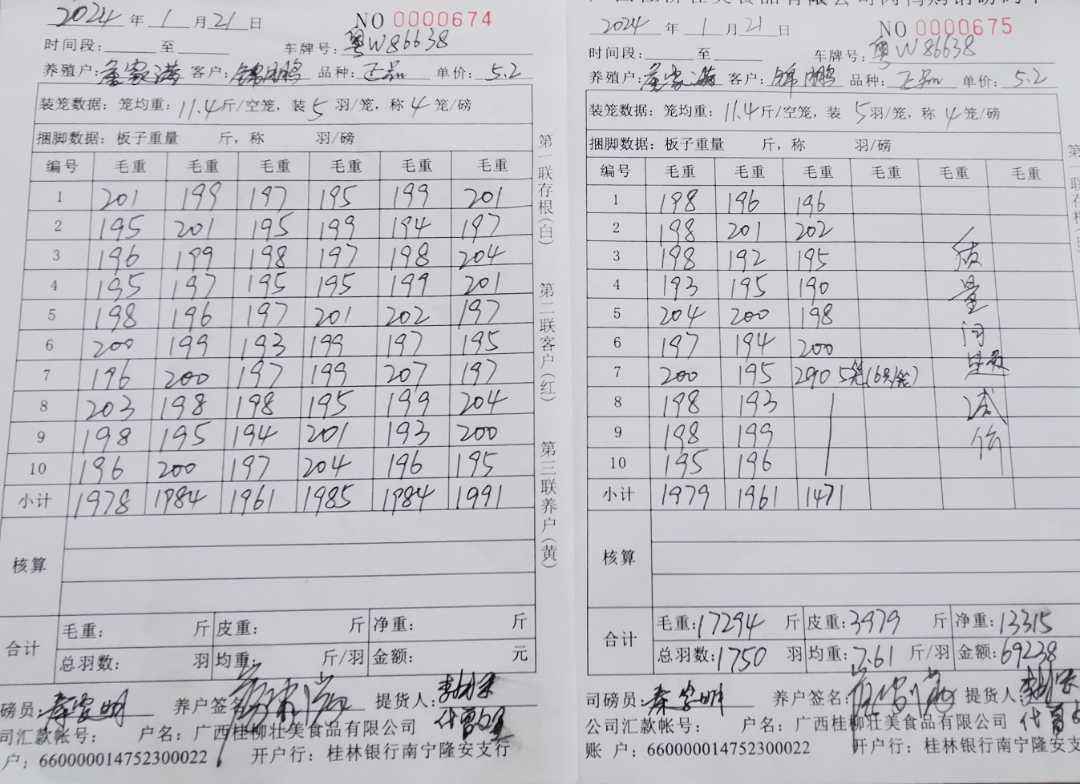 2024 年 1 月 21 日 NO 0000674
时间段: 至 车牌号: 粤W86638
养殖户: 客户: 锦鹏 品种: 正 单价: 5.2
装笼数据: 笼均重: 11.4 斤/空笼, 装 5 羽/笼, 称 4 笼/磅
捆脚数据: 板子重量 斤, 称 羽/磅
编号 毛重 毛重 毛重 毛重 毛重 毛重
1 201 199 197 195 199 201
2 195 201 195 199 194 197
3 196 199 198 197 198 204
4 195 197 195 195 199 201
5 198 196 197 201 202 197
6 200 199 193 199 197 195
7 196 200 197 199 207 197
8 203 198 198 195 199 204
9 198 195 194 201 193 200
10 196 200 197 204 196 195
小计 1978 1984 1961 1985 1984 1991
核算
合计 毛重: 斤 皮重: 斤 净重: 斤
总羽数: 羽 均重: 斤/羽 金额: 元
磅员: 秦家明 养户签名: 提货人:
司汇款帐号: 户名: 广西桂柳壮美食品有限公司 代
户: 660000014752300022 开户行: 桂林银行南宁隆安支行
第一联存根(白)
第二联客户(红)
第三联养户(黄)
2024 年 1 月 21 日 NO 0000675
时间段: 至 车牌号: 粤W86638
养殖户: 客户: 锦鹏 品种: 正 单价: 5.2
装笼数据: 笼均重: 11.4 斤/空笼, 装 5 羽/笼, 称 4 笼/磅
捆脚数据: 板子重量 斤, 称 羽/磅
编号 毛重 毛重 毛重 毛重 毛重 毛重
1 198 196 196
2 198 201 202
3 198 192 195
4 193 195 190
5 204 200 198
6 197 194 200
7 200 195 290 5笼(6只/笼)
8 198 193
9 198 199
10 195 196
小计 1979 1961 1471
质量问题减价
核算
合计 毛重: 17294 斤 皮重: 3979 斤 净重: 13315
总羽数: 1750 羽 均重: 7.61 斤/羽 金额: 69238
司磅员: 秦家明 养户签名: 提货人:
公司汇款帐号: 户名: 广西桂柳壮美食品有限公司 代
账 户: 660000014752300022 开户行: 桂林银行南宁隆安支